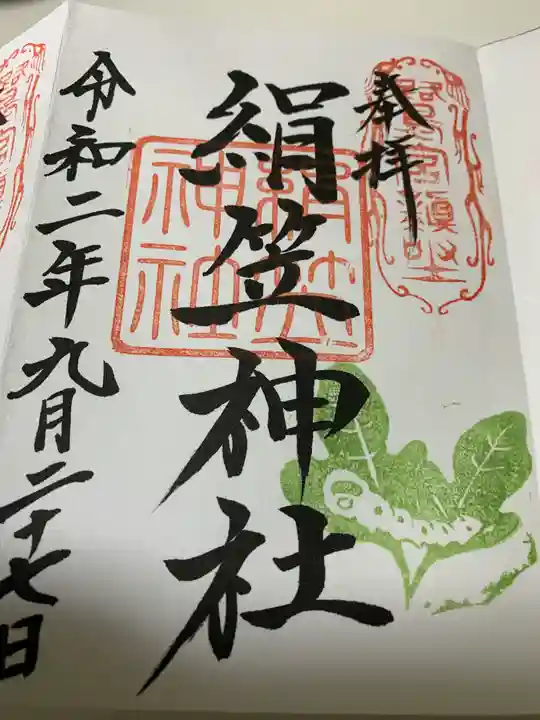 奉拝
絹笠神社
絹笠
神社
令和二年九月二十七日